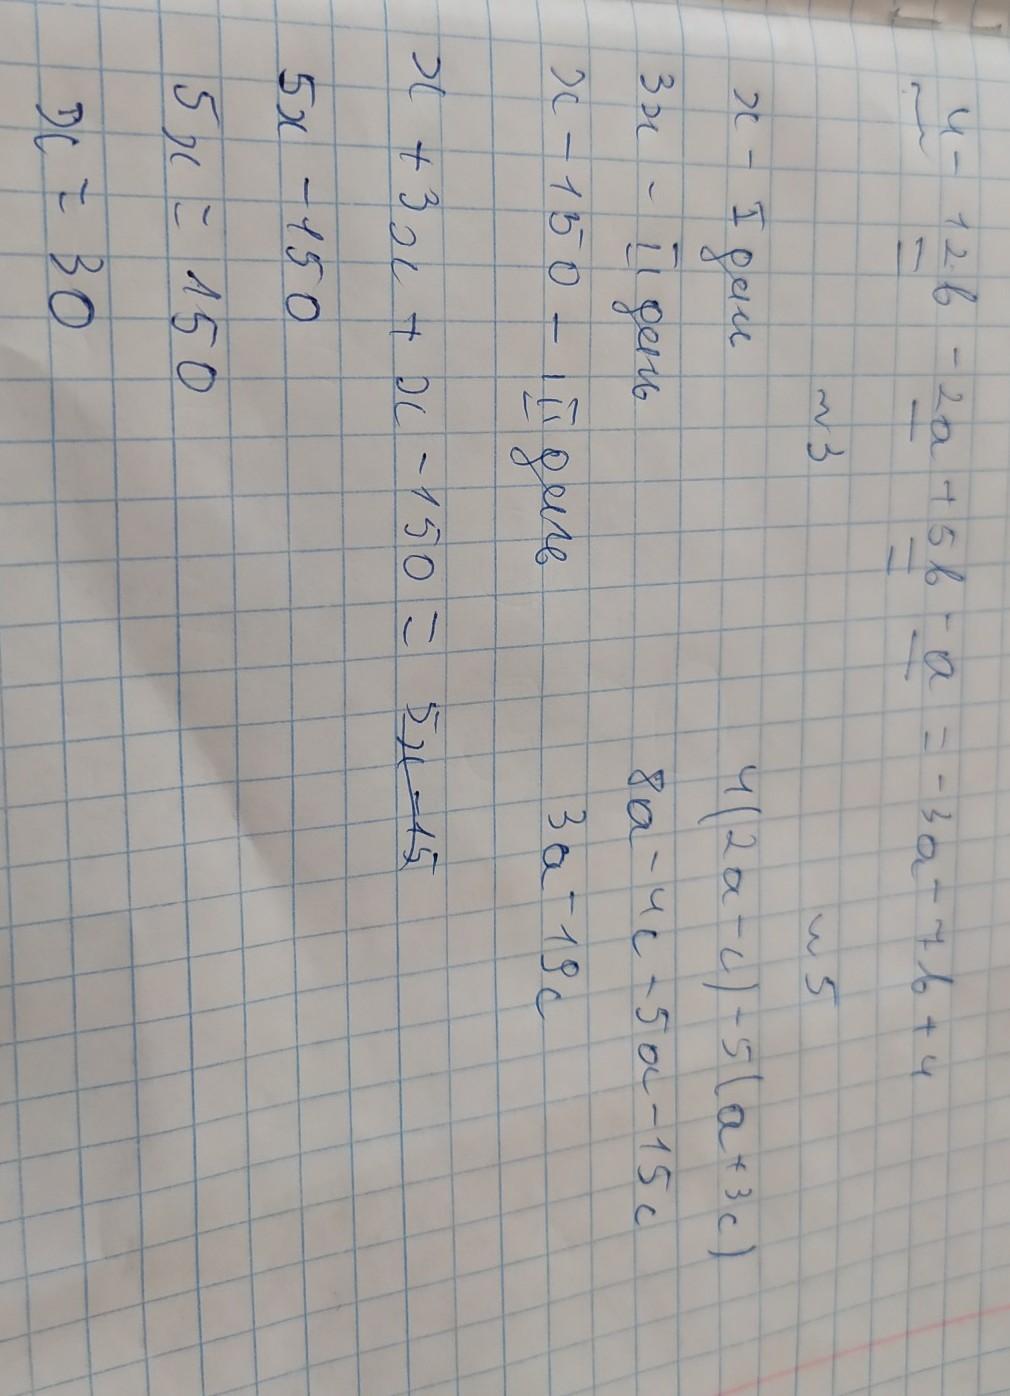 4 - 12b - 2a + 5b - a = -3a - 7b + 4
~3
x - I день
3x - II день
x - 150 - III день
x + 3x + x - 150 = 5x - 15
5x - 150
5x = 150
x = 30
~5
4(2a - c) - 5(a + 3c)
8a - 4c - 5a - 15c
3a - 19c